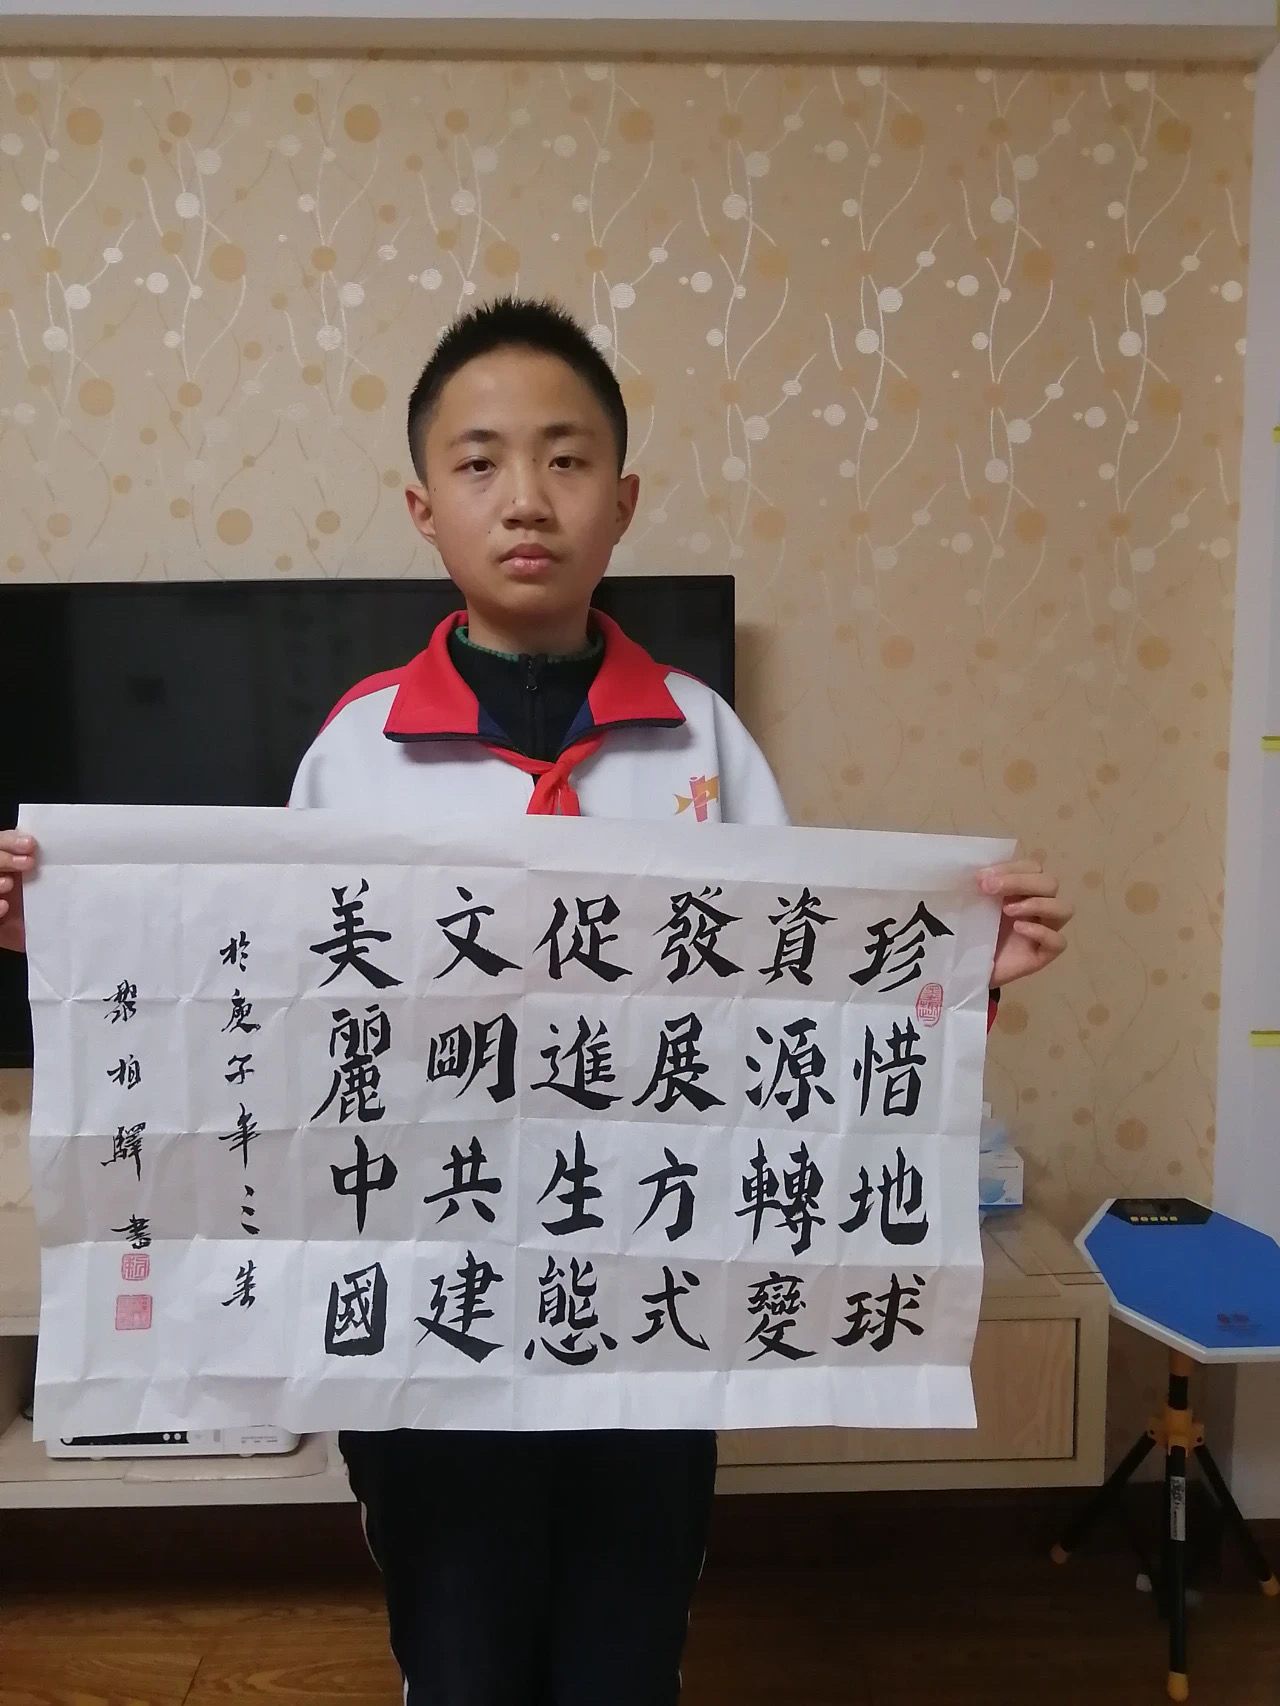 珍惜地球
資源轉變
發展方式
促進生態
文明共建
美麗中國
於庚子年三春
黎柏驛書